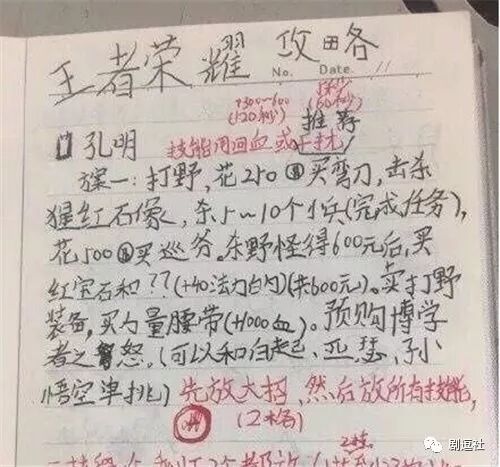 王者荣耀 攻略
No. Date. 11
+300~600
(120秒)
(60秒)
推荐
孔明 技能用回血或干扰
方案一:打野,花250买弯刀,击杀
猩红石像,杀5~10个小兵(完成任务),
花500买巡务。杀野怪得600元后,买
红宝石和??(+40法力白勺)(共600元)。卖打野
装备,买力量腰带(+1000血)。预购博学
者之怒。(可以和白起、亚瑟、孙
悟空单挑)先放大招,然后放所有技能,
(2楼)
剧逗社